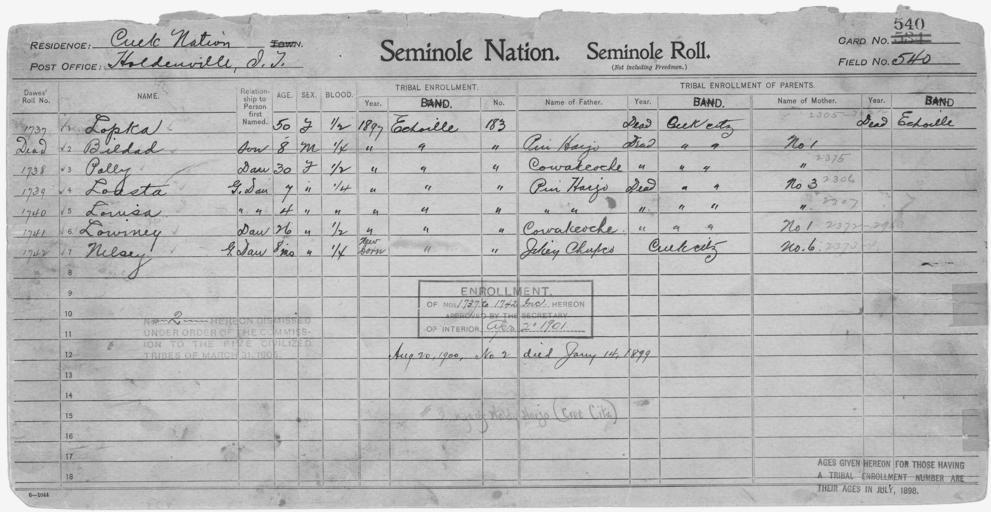 540
RESIDENCE: Creek Nation TOWN. Seminole Nation. Seminole Roll. CARD NO. 531
POST OFFICE: Holdenville, I.T. (Not including Freedmen.) FIELD NO. 540
Dawes' Roll No. NAME. Relationship to Person first Named. AGE. SEX. BLOOD. TRIBAL ENROLLMENT. TRIBAL ENROLLMENT OF PARENTS.
Year. BAND. No. Name of Father. Year. BAND. Name of Mother. Year. BAND
2305
1737 1 Lopka 50 F 1/2 1897 Echoille 183 Dead Creek citz Dead Echoille
Dead 2 Bildad Son 8 M 1/4 " " " Pin Harjo Dead " " No 1
1738 3 Polly Dau 30 F 1/2 " " " Cowakoche " " " " 2375
1739 4 Lousta G. Dau 7 " 1/4 " " " Pin Harjo Dead " " No 3 2306
1740 5 Louisa " " 4 " " " " " " " " " " " 2307
1741 6 Lowiney Dau 26 " 1/2 " " " Cowakoche " " " No 1
1742 7 Nelsey G Dau 8 mo " 1/4 New born " " Creek citz No. 6
8
9
ENROLLMENT.
OF NOS. 1737 to 1742 Inc HEREON
APPROVED BY THE SECRETARY
OF INTERIOR Apr 2" 1901
10
No. 2 HEREON DISMISSED
UNDER ORDER OF THE COMMISSION TO THE FIVE CIVILIZED
TRIBES OF MARCH 31, 1905.
11
12 Aug 20, 1900, No 2 died Jany 14, 1899
13
14
15 Harjo (Cree Citz)
16
17
18
AGES GIVEN HEREON FOR THOSE HAVING
A TRIBAL ENROLLMENT NUMBER ARE
THEIR AGES IN JULY, 1898.
6—1044